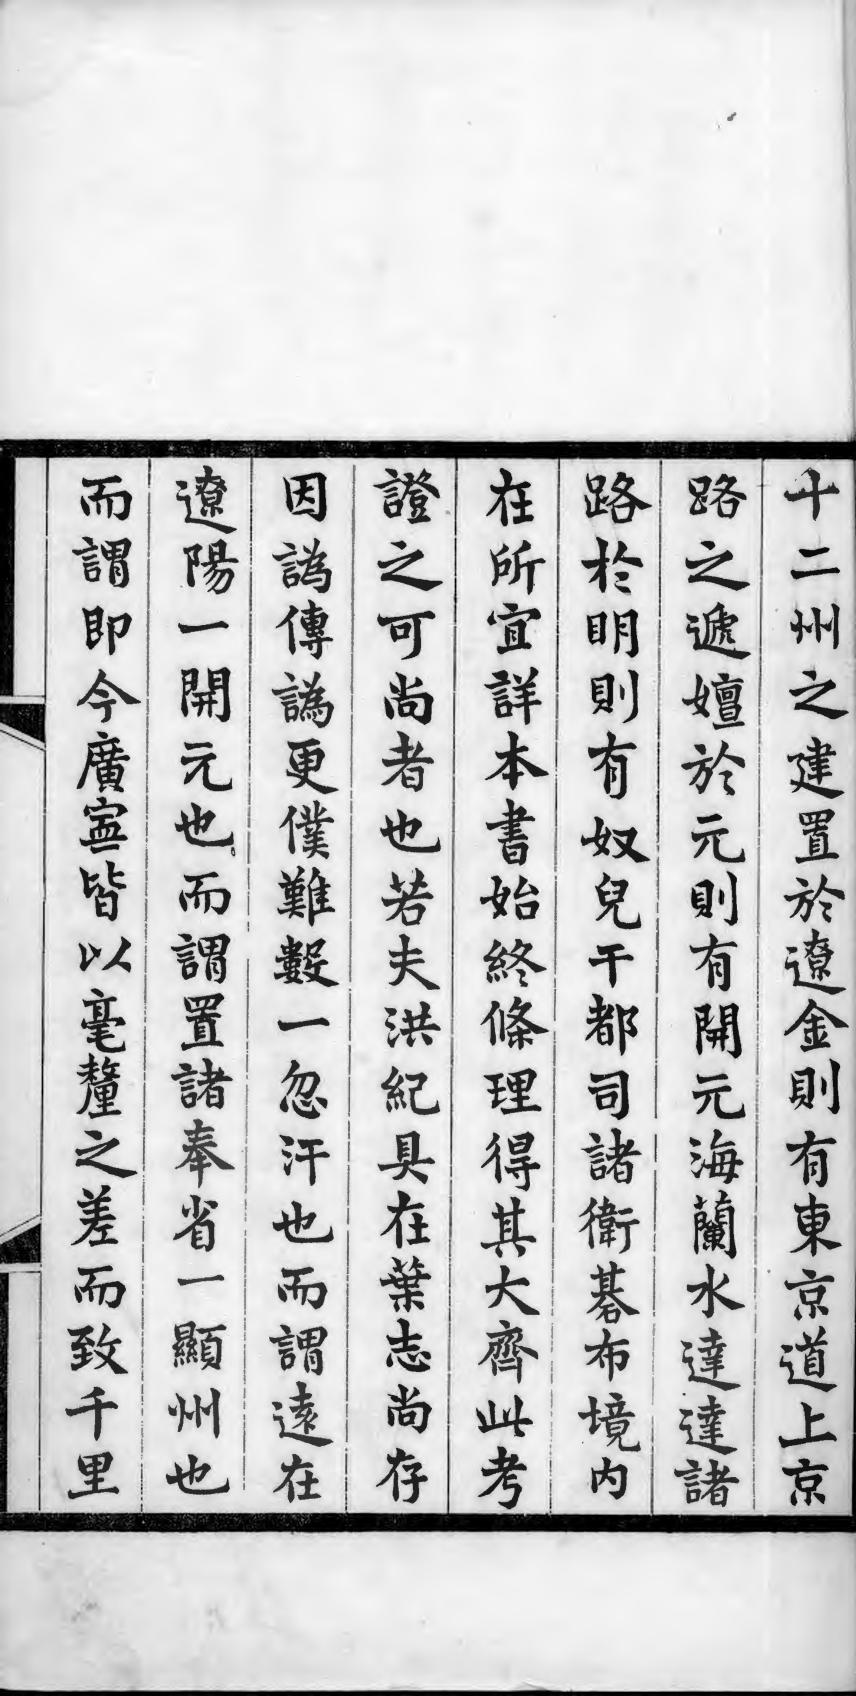 十二州之建置於遼金則有東京道上京
路之遞嬗於元則有開元海蘭水達達諸
路於明則有奴兒干都司諸衛碁布境内
在所宜詳本書始終條理得其大齊此考
證之可尚者也若夫洪紀具在葉志尚存
因譌傳譌更僕難數一忽汗也而謂遠在
遼陽一開元也而謂置諸奉省一顯州也
而謂即今廣寍皆以毫釐之差而致千里